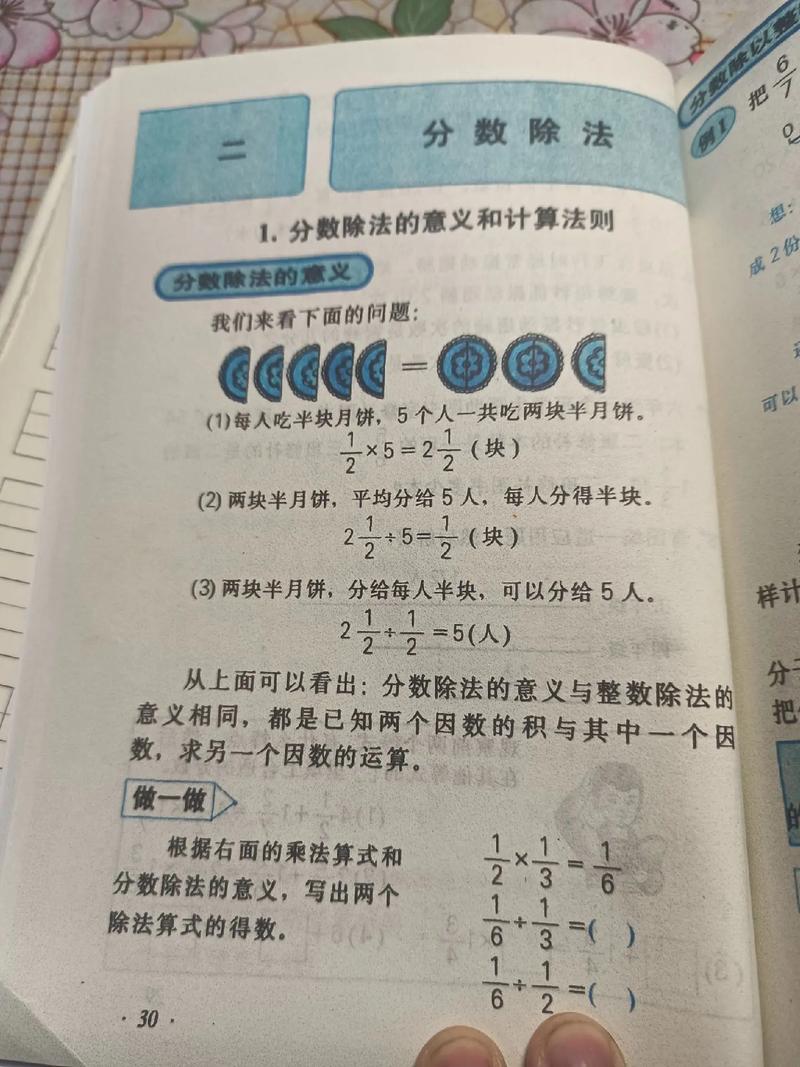 二 分数除法
1. 分数除法的意义和计算法则
分数除法的意义
我们来看下面的问题：
=
(1)每人吃半块月饼，5个人一共吃两块半月饼。
1/2×5=2 1/2（块）
(2)两块半月饼，平均分给5人，每人分得半块。
2 1/2÷5=1/2（块）
(3)两块半月饼，分给每人半块，可以分给5人。
2 1/2÷1/2=5(人)
从上面可以看出：分数除法的意义与整数除法的
意义相同，都是已知两个因数的积与其中一个因
数，求另一个因数的运算。
做一做
根据右面的乘法算式和
分数除法的意义，写出两个
除法算式的得数。
1/2×1/3=1/6
1/6÷1/3=( )
1/6÷1/2=( )
·30·
分数除以整
例1
把6/7
0
想：
成2份
可以
样计
分子
把
的